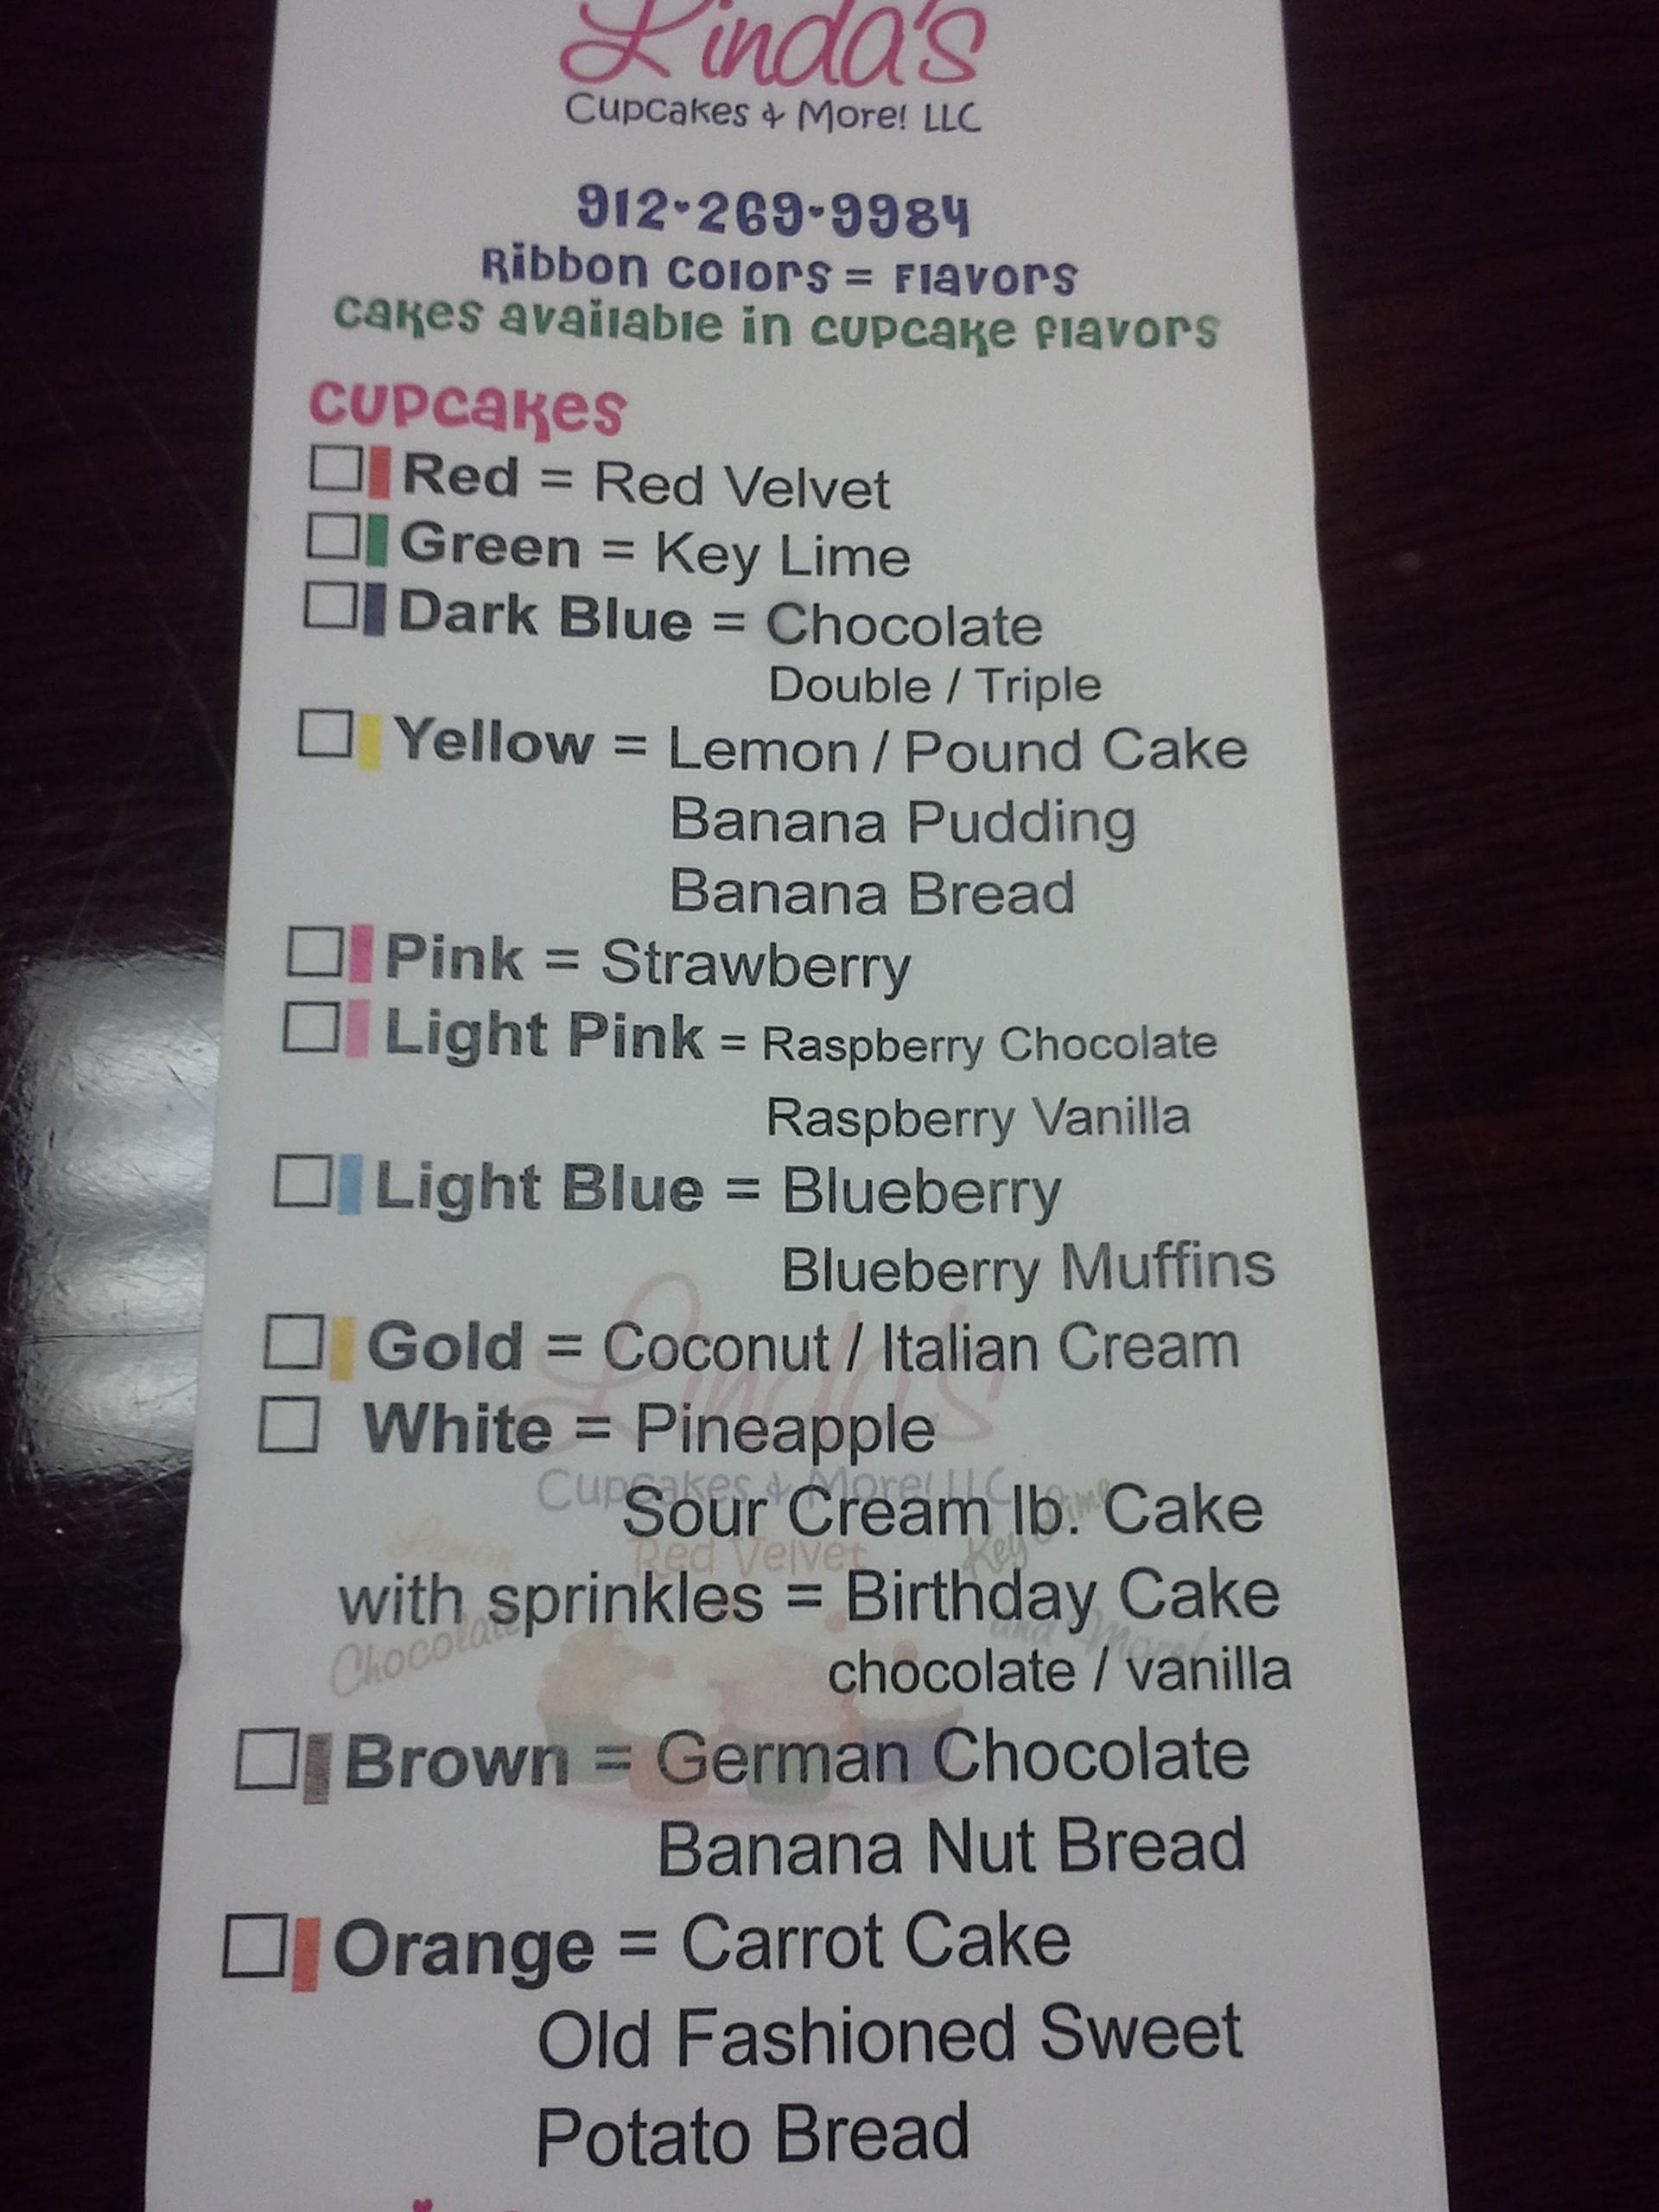 Linda's
Cupcakes & More! LLC
912-269-9984
Ribbon Colors = Flavors
Cakes available in cupcake flavors
Cupcakes
Red = Red Velvet
Green = Key Lime
Dark Blue = Chocolate
Double / Triple
Yellow = Lemon / Pound Cake
Banana Pudding
Banana Bread
Pink = Strawberry
Light Pink = Raspberry Chocolate
Raspberry Vanilla
Light Blue = Blueberry
Blueberry Muffins
Gold = Coconut / Italian Cream
Linda's
White = Pineapple
Cupcakes & More! LLC
Sour Cream lb. Cake
Lemon Red Velvet Key Lime
with sprinkles = Birthday Cake
Chocolate and More!
chocolate / vanilla
Brown = German Chocolate
Banana Nut Bread
Orange = Carrot Cake
Old Fashioned Sweet
Potato Bread